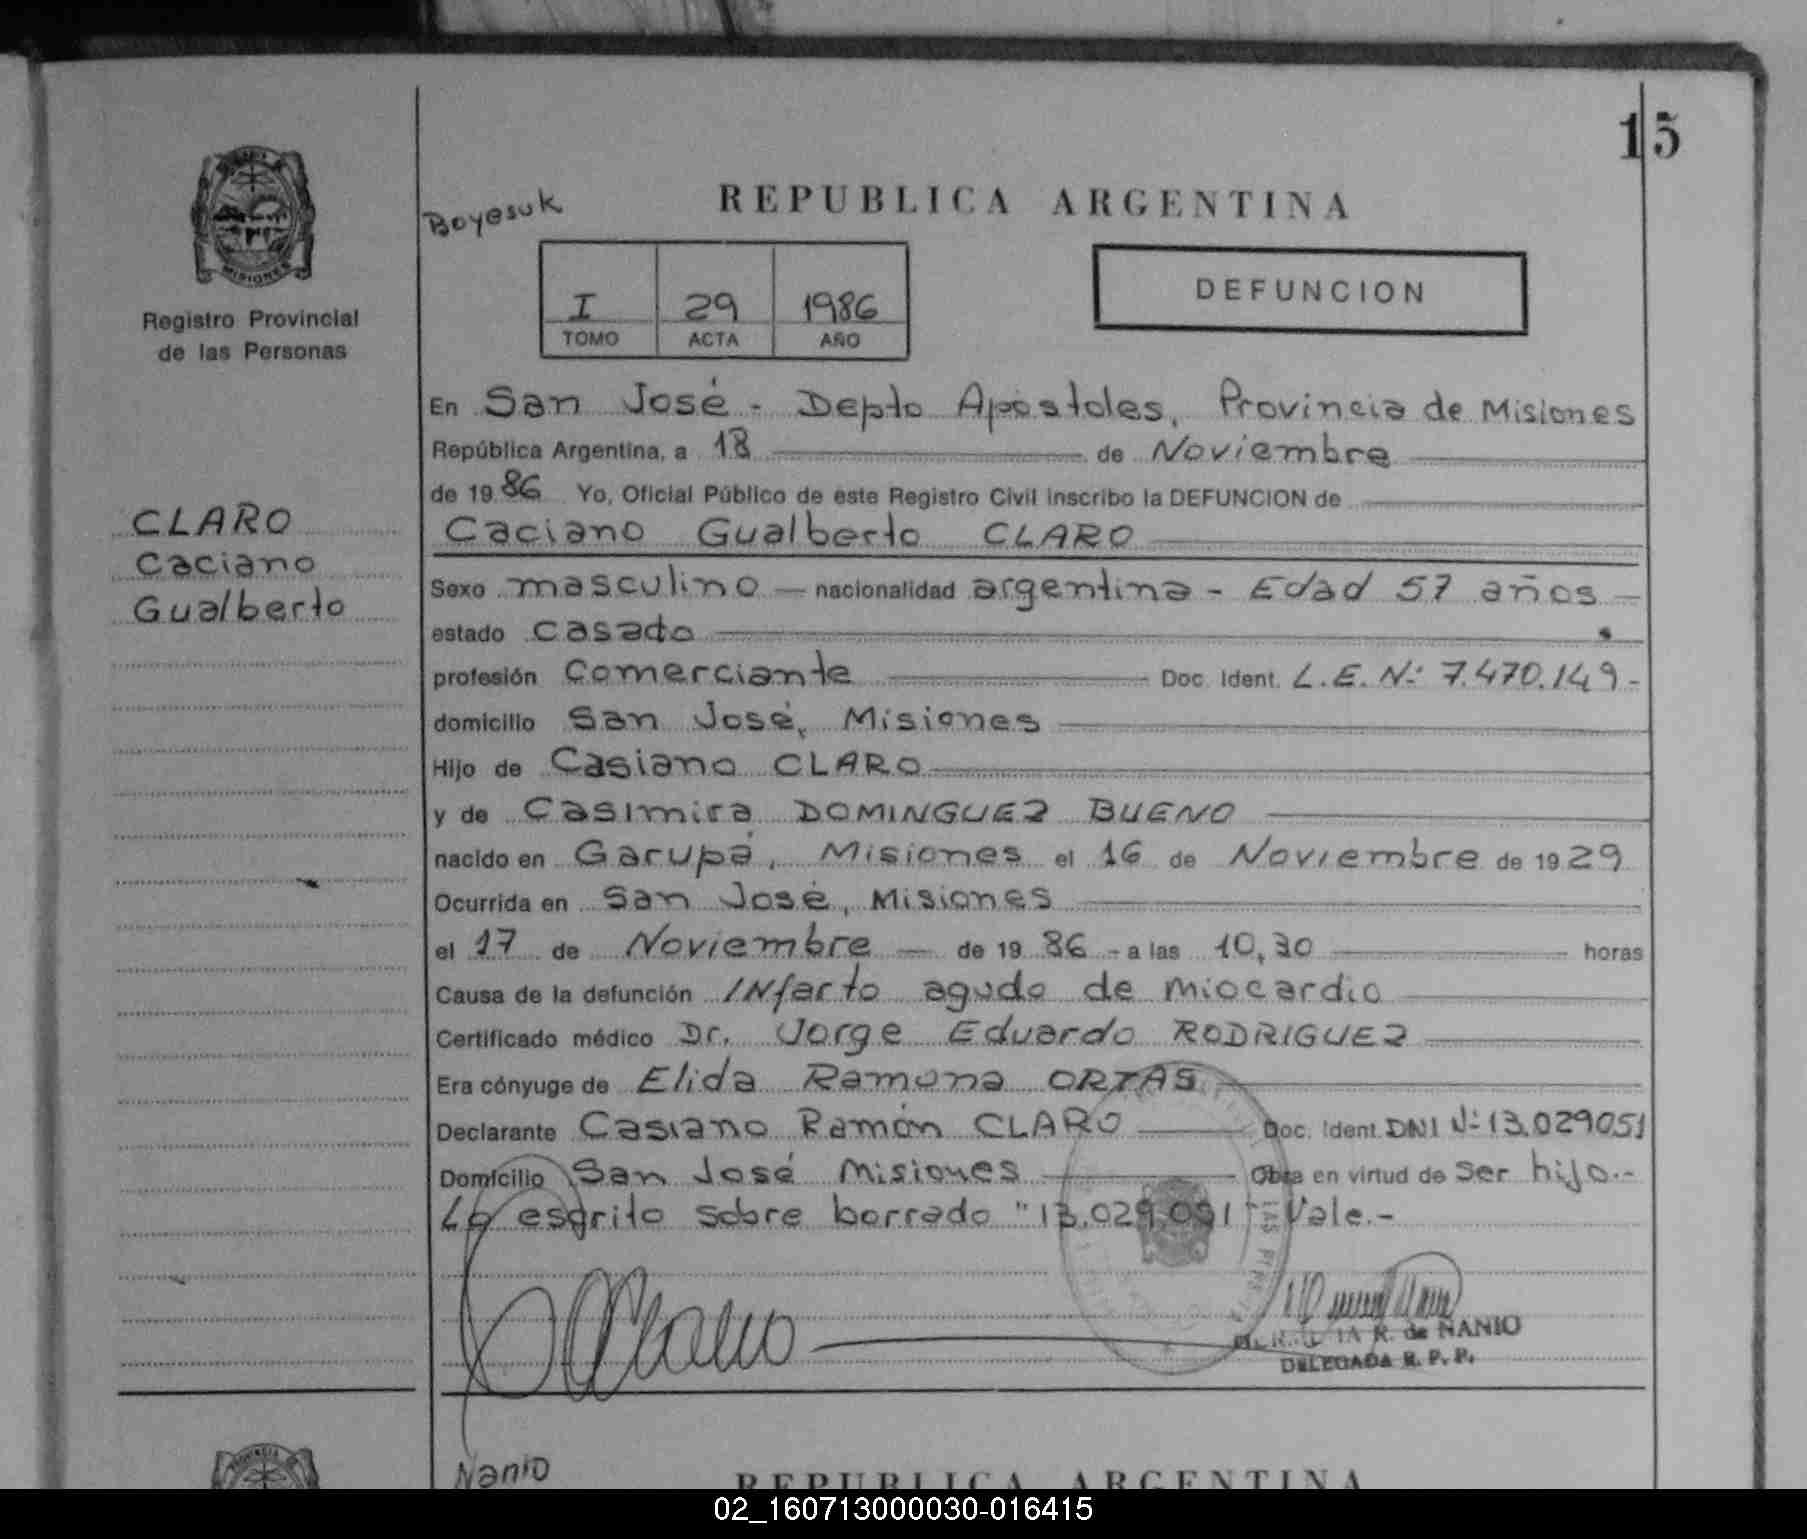 15
PROVINCIA DE
MISIONES
Registro Provincial
de las Personas
Boyesuk
REPUBLICA ARGENTINA
I 29 1986
TOMO ACTA AÑO
DEFUNCION
CLARO
Caciano
Gualberto
En San José - Depto Apóstoles, Provincia de Misiones
República Argentina, a 18 de Noviembre
de 1986 Yo, Oficial Público de este Registro Civil inscribo la DEFUNCION de
Caciano Gualberto CLARO
Sexo masculino - nacionalidad argentina - Edad 57 años -
estado casado
profesión comerciante Doc. Ident. L.E. Nº: 7.470.149-
domicilio San José, Misiones
Hijo de Casiano CLARO
y de Casimira DOMINGUEZ BUENO
nacido en Garupá, Misiones el 16 de Noviembre de 1929
Ocurrida en San José, Misiones
el 17 de Noviembre - de 1986 - a las 10,30 horas
Causa de la defunción INfarto agudo de miocardio
Certificado médico Dr. Jorge Eduardo RODRIGUEZ
Era cónyuge de Elida Ramona ORTAS
Declarante Casiano Ramón CLARO Doc. Ident. DNI Nº 13.029051
Domicilio San José Misiones Obra en virtud de ser hijo.-
Lo escrito sobre borrado "13.029.051" Vale.-
R. de NANIO
DELEGADA R. P. P.
Nanio
REPUBLICA ARGENTINA
02_160713000030-016415